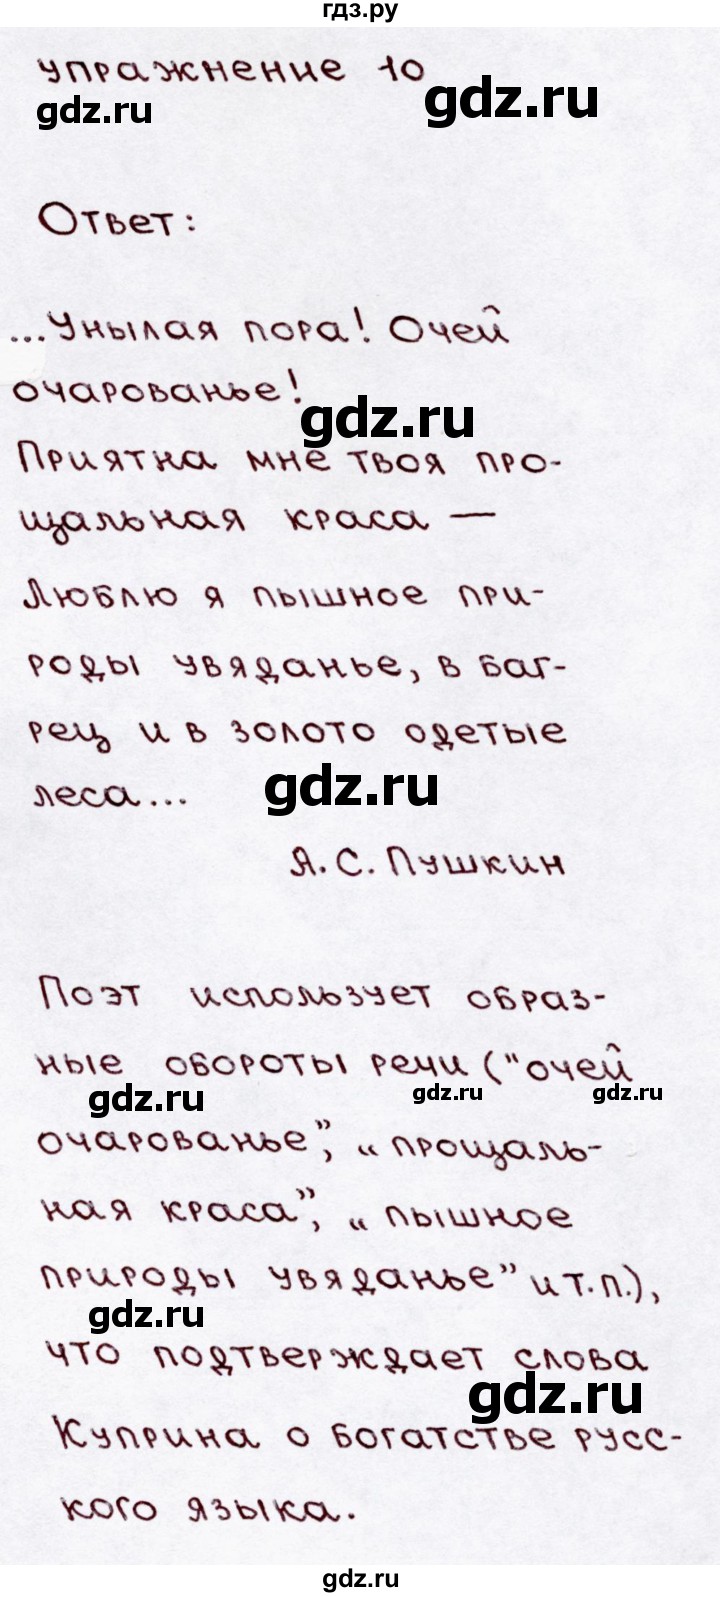 гдз.ру
упражнение 10
gdz.ru
gdz.ru
Ответ:
...Унылая пора! Очей
очарованье!
gdz.ru
Приятна мне твоя про-
щальная краса —
Люблю я пышное при-
роды увяданье, в баг-
рец и в золото одетые
леса...
gdz.ru
А.С. Пушкин
Поэт использует образ-
ные обороты речи ("очей
gdz.ru
gdz.ru
gdz.ru
очарованье", „прощаль-
ная краса", „пышное
природы увяданье" и т.п.),
gdz.ru
что подтверждает слова
gdz.ru
Куприна о богатстве русс-
кого языка.
gdz.ru